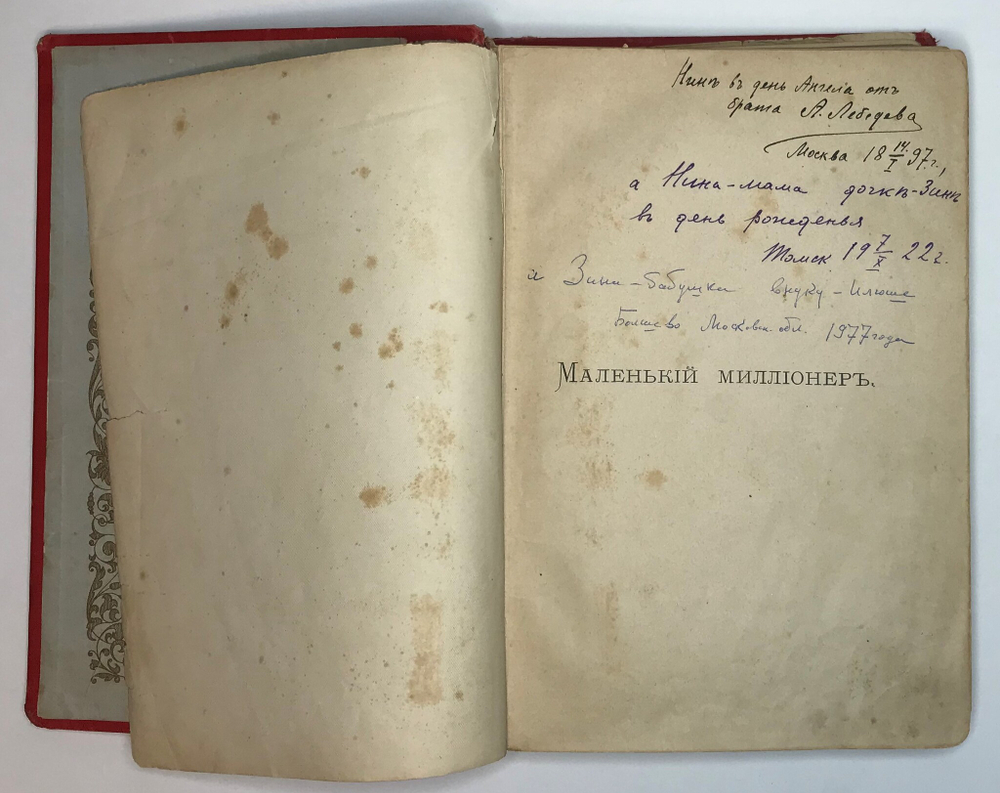 Нинѣ въ день Ангела отъ
брата А. Лебедева
Москва 18 14/I 97 г.,
а Нина-мама дочкѣ-Зинѣ
въ день рожденья
Томск 19 7/X 22 г.
и Зина-бабушка внуку-Илюше
Болшево Московск. обл. 1977 года
МАЛЕНЬКІЙ МИЛЛІОНЕРЪ.